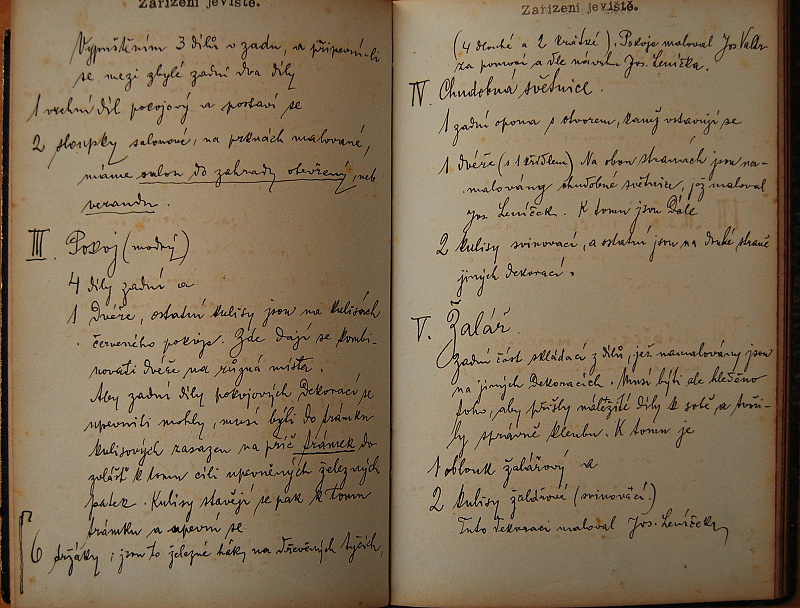 Zařízení jeviště.
Vypuštěním 3 dílů v zadu, a připevní-li
se mezi zbylé zadní dva díly
1 vrchní díl pokojový a postaví se
2 sloupky salonové, na prknách malované,
máme salon do zahrady otevřený, neb
verandu.
III. Pokoj (modrý)
4 díly zadní a
1 dvéře, ostatní kulisy jsou na kulisách
červeného pokoje. Zde dají se kombi-
novati dvéře na různá místa.
Aby zadní díly pokojových dekorací se
upevniti mohly, musí býti do trámku
kulisových zasazen na příč trámek do
zvlášť k tomu cíli upevněných železných
patek. Kulisy stavějí se pak k tomu
trámku a upevní se
6 držáky, jsou to železné háky na dřevěných tyčích,
Zařízení jeviště.
(4 dlouhé a 2 krátké). Pokoje maloval Jos.
za pomoci a dle návrhu Jos. Leníčka.
IV. Chudobná světnice.
1 zadní opona s otvorem, kamž vstavují se
1 dvéře (s 1 křídlem) Na obou stranách jsou na-
malovány chudobné světnice, jež maloval
Jos. Leníček. K tomu jsou dále
2 kulisy svinovací, a ostatní jsou na druhé straně
jiných dekorací.
V. Žalář.
Zadní část skládací z dílů, jež namalovány jsou
na jiných dekoracích. Musí býti ale hleděno
toho, aby přišly náležité díly k sobě a tvoři-
ly správně klenbu. K tomu je
1 oblouk žalářový a
2 kulisy žalářové (svinovací.)
Tuto dekoraci maloval Jos. Leníček,